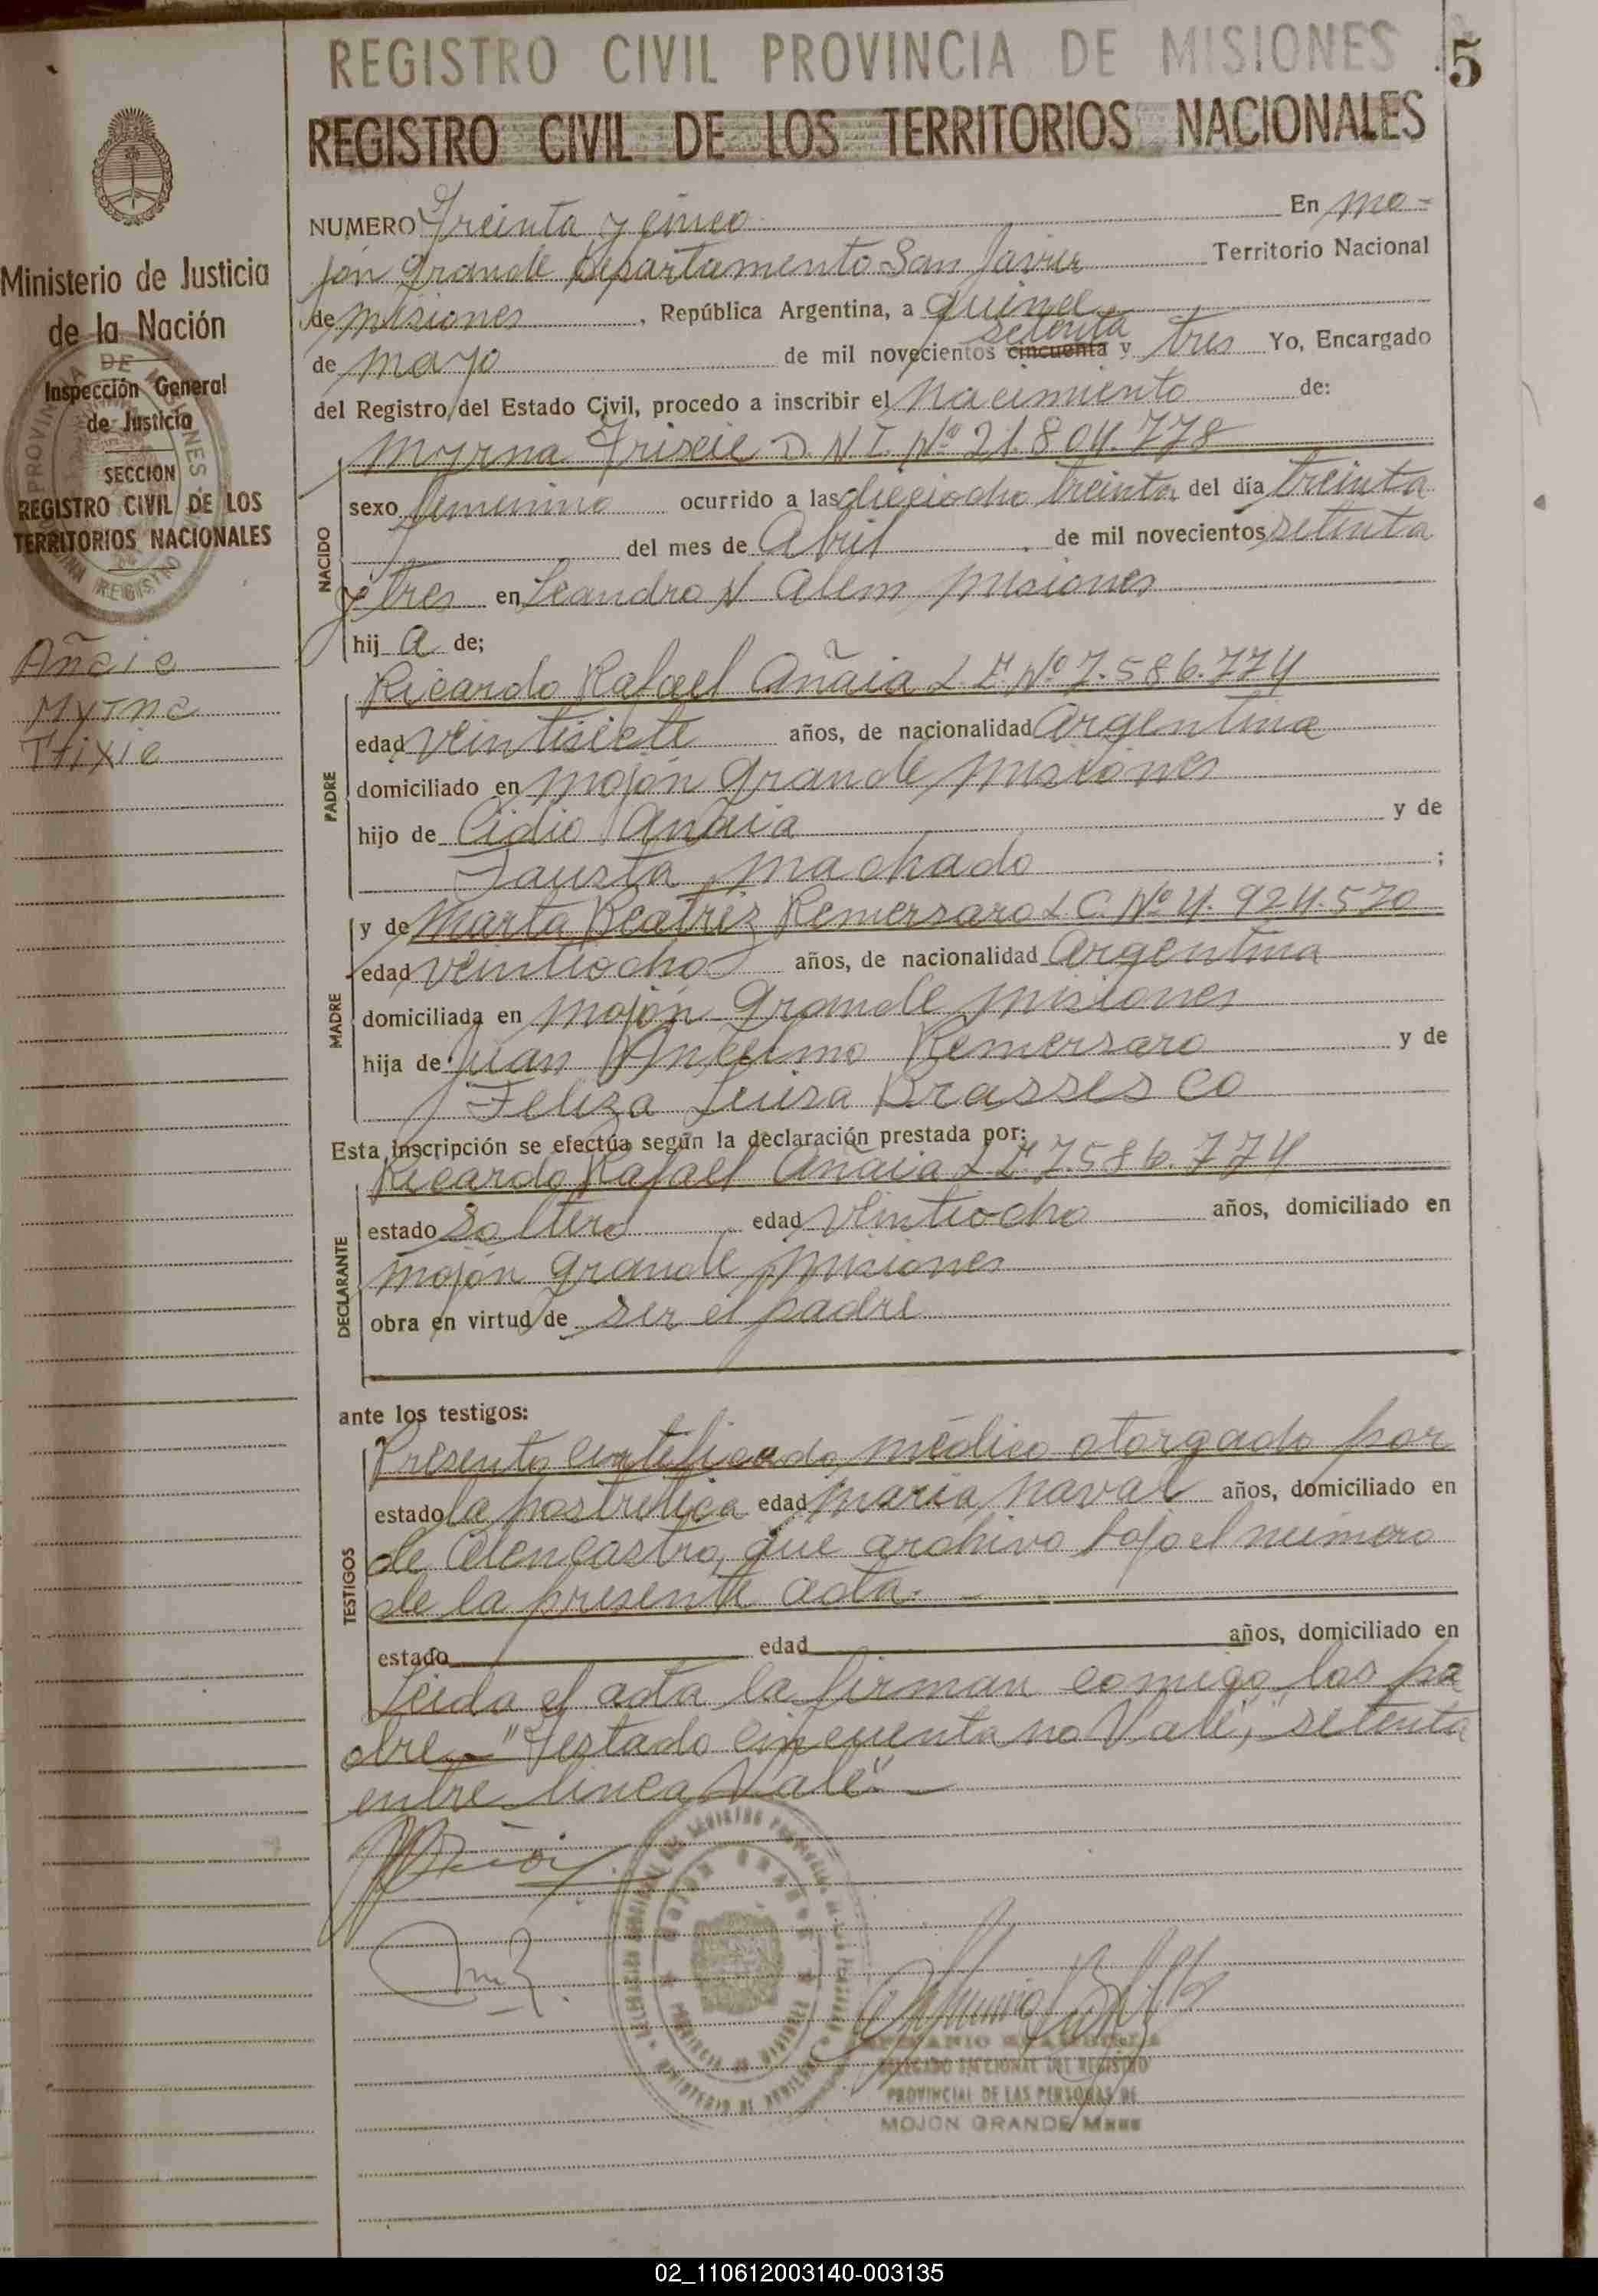 REGISTRO CIVIL PROVINCIA DE MISIONES
5
REGISTRO CIVIL DE LOS TERRITORIOS NACIONALES
Ministerio de Justicia
de la Nación
Inspección General
de Justicia
SECCION
REGISTRO CIVIL DE LOS
TERRITORIOS NACIONALES
Añaia
Myrna
Trixie
NUMERO Treinta y cinco En Mo-
jón Grande Departamento San Javier Territorio Nacional
de Misiones, República Argentina, a quince
setenta
de Mayo de mil novecientos cincuenta y tres Yo, Encargado
del Registro del Estado Civil, procedo a inscribir el Nacimiento de:
Myrna Trixie D.N.I. Nº 21.804.778
NACIDO
sexo femenino ocurrido a las dieciocho treinta del día treinta
del mes de Abril de mil novecientos setenta
y tres en Leandro N Alem, Misiones
hij a de;
PADRE
Ricardo Rafael Añaia L.E. Nº 7.586.774
edad veintisiete años, de nacionalidad Argentina
domiciliado en Mojón Grande Misiones
hijo de Cidio Añaia y de
Fausta Machado ;
MADRE
y de Marta Beatriz Remersaro L C. Nº 4.924.570
edad veintiocho años, de nacionalidad Argentina
domiciliada en Mojón Grande Misiones
hija de Juan Anselmo Remersaro y de
Feliza Luisa Brassesco
Esta inscripción se efectúa según la declaración prestada por:
DECLARANTE
Ricardo Rafael Añaia L E 7.586.774
estado Soltero edad veintiocho años, domiciliado en
Mojón Grande Misiones
obra en virtud de ser el padre
ante los testigos:
TESTIGOS
Presento certificado médico otorgado por
estado la edad María años, domiciliado en
de Alencastro, que archivo bajo el número
de la presente acta.
estado edad años, domiciliado en
Leida el acta la firman comigo los pa
dre "Testado cincuenta no Vale," setenta
entre linea Vale"
DELEGADO SECCIONAL DEL REGISTRO
PROVINCIAL DE LAS PERSONAS DE
MOJON GRANDE
02_110612003140-003135